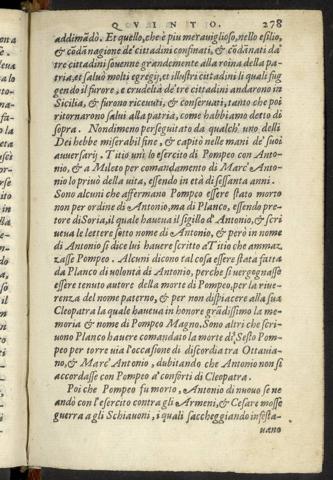 QVINTO. 278
addimãdò. Et quello, che è piu meraviglioso, nello esilio,
& cõdãnagione de' cittadini confinati, & cõdãnati da'
tre cittadini souenne grandemente alla roina della pa-
tria, et saluò molti egregij, et illustri cittadini li quali fug
gendo il furore, e crudeltà de' tre cittadini andarono in
Sicilia, & furono riceuuti, & conseruati, tanto che poi
ritornarono salui alla patria, come habbiamo detto di
sopra. Nondimeno perseguitato da qualch' uno delli
Dei hebbe miserabil fine, & capitò nelle mani de' suoi
auuersarij. Titio unì lo esercito di Pompeo con Anto-
nio, & a Mileto per comandamento di Marc' Anto-
nio lo priuò della uita, essendo in età di sessanta anni.
Sono alcuni che affermano Pompeo essere stato morto
non per ordine di Antonio, ma di Planco, essendo pre-
tore di Soria, il quale haueua il sigillo d' Antonio, & scri
ueua le lettere sotto nome di Antonio, & però in nome
di Antonio si dice lui hauere scritto a Titio che ammaz
zasse Pompeo. Alcuni dicono tal cosa essere stata fatta
da Planco di uolontà di Antonio, perche si uergognasse
essere tenuto autore della morte di Pompeo, per la riue
renza del nome paterno, & per non dispiacere alla sua
Cleopatra la quale haueua in honore grãdissimo la me-
moria & nome di Pompeo Magno. Sono altri che scri-
uono Planco hauere comandato la morte di Sesto Pom
peo per torre uia l'occasione di discordia tra Ottauia-
no, & Marc' Antonio, dubitando che Antonio non si
accordasse con Pompeo a' conforti di Cleopatra.
Poi che Pompeo fu morto, Antonio di nuouo se ne
andò con l'esercito contra gli Armeni, & Cesare mosse
guerra a gli Schiauoni, i quali saccheggiando infesta-
uano